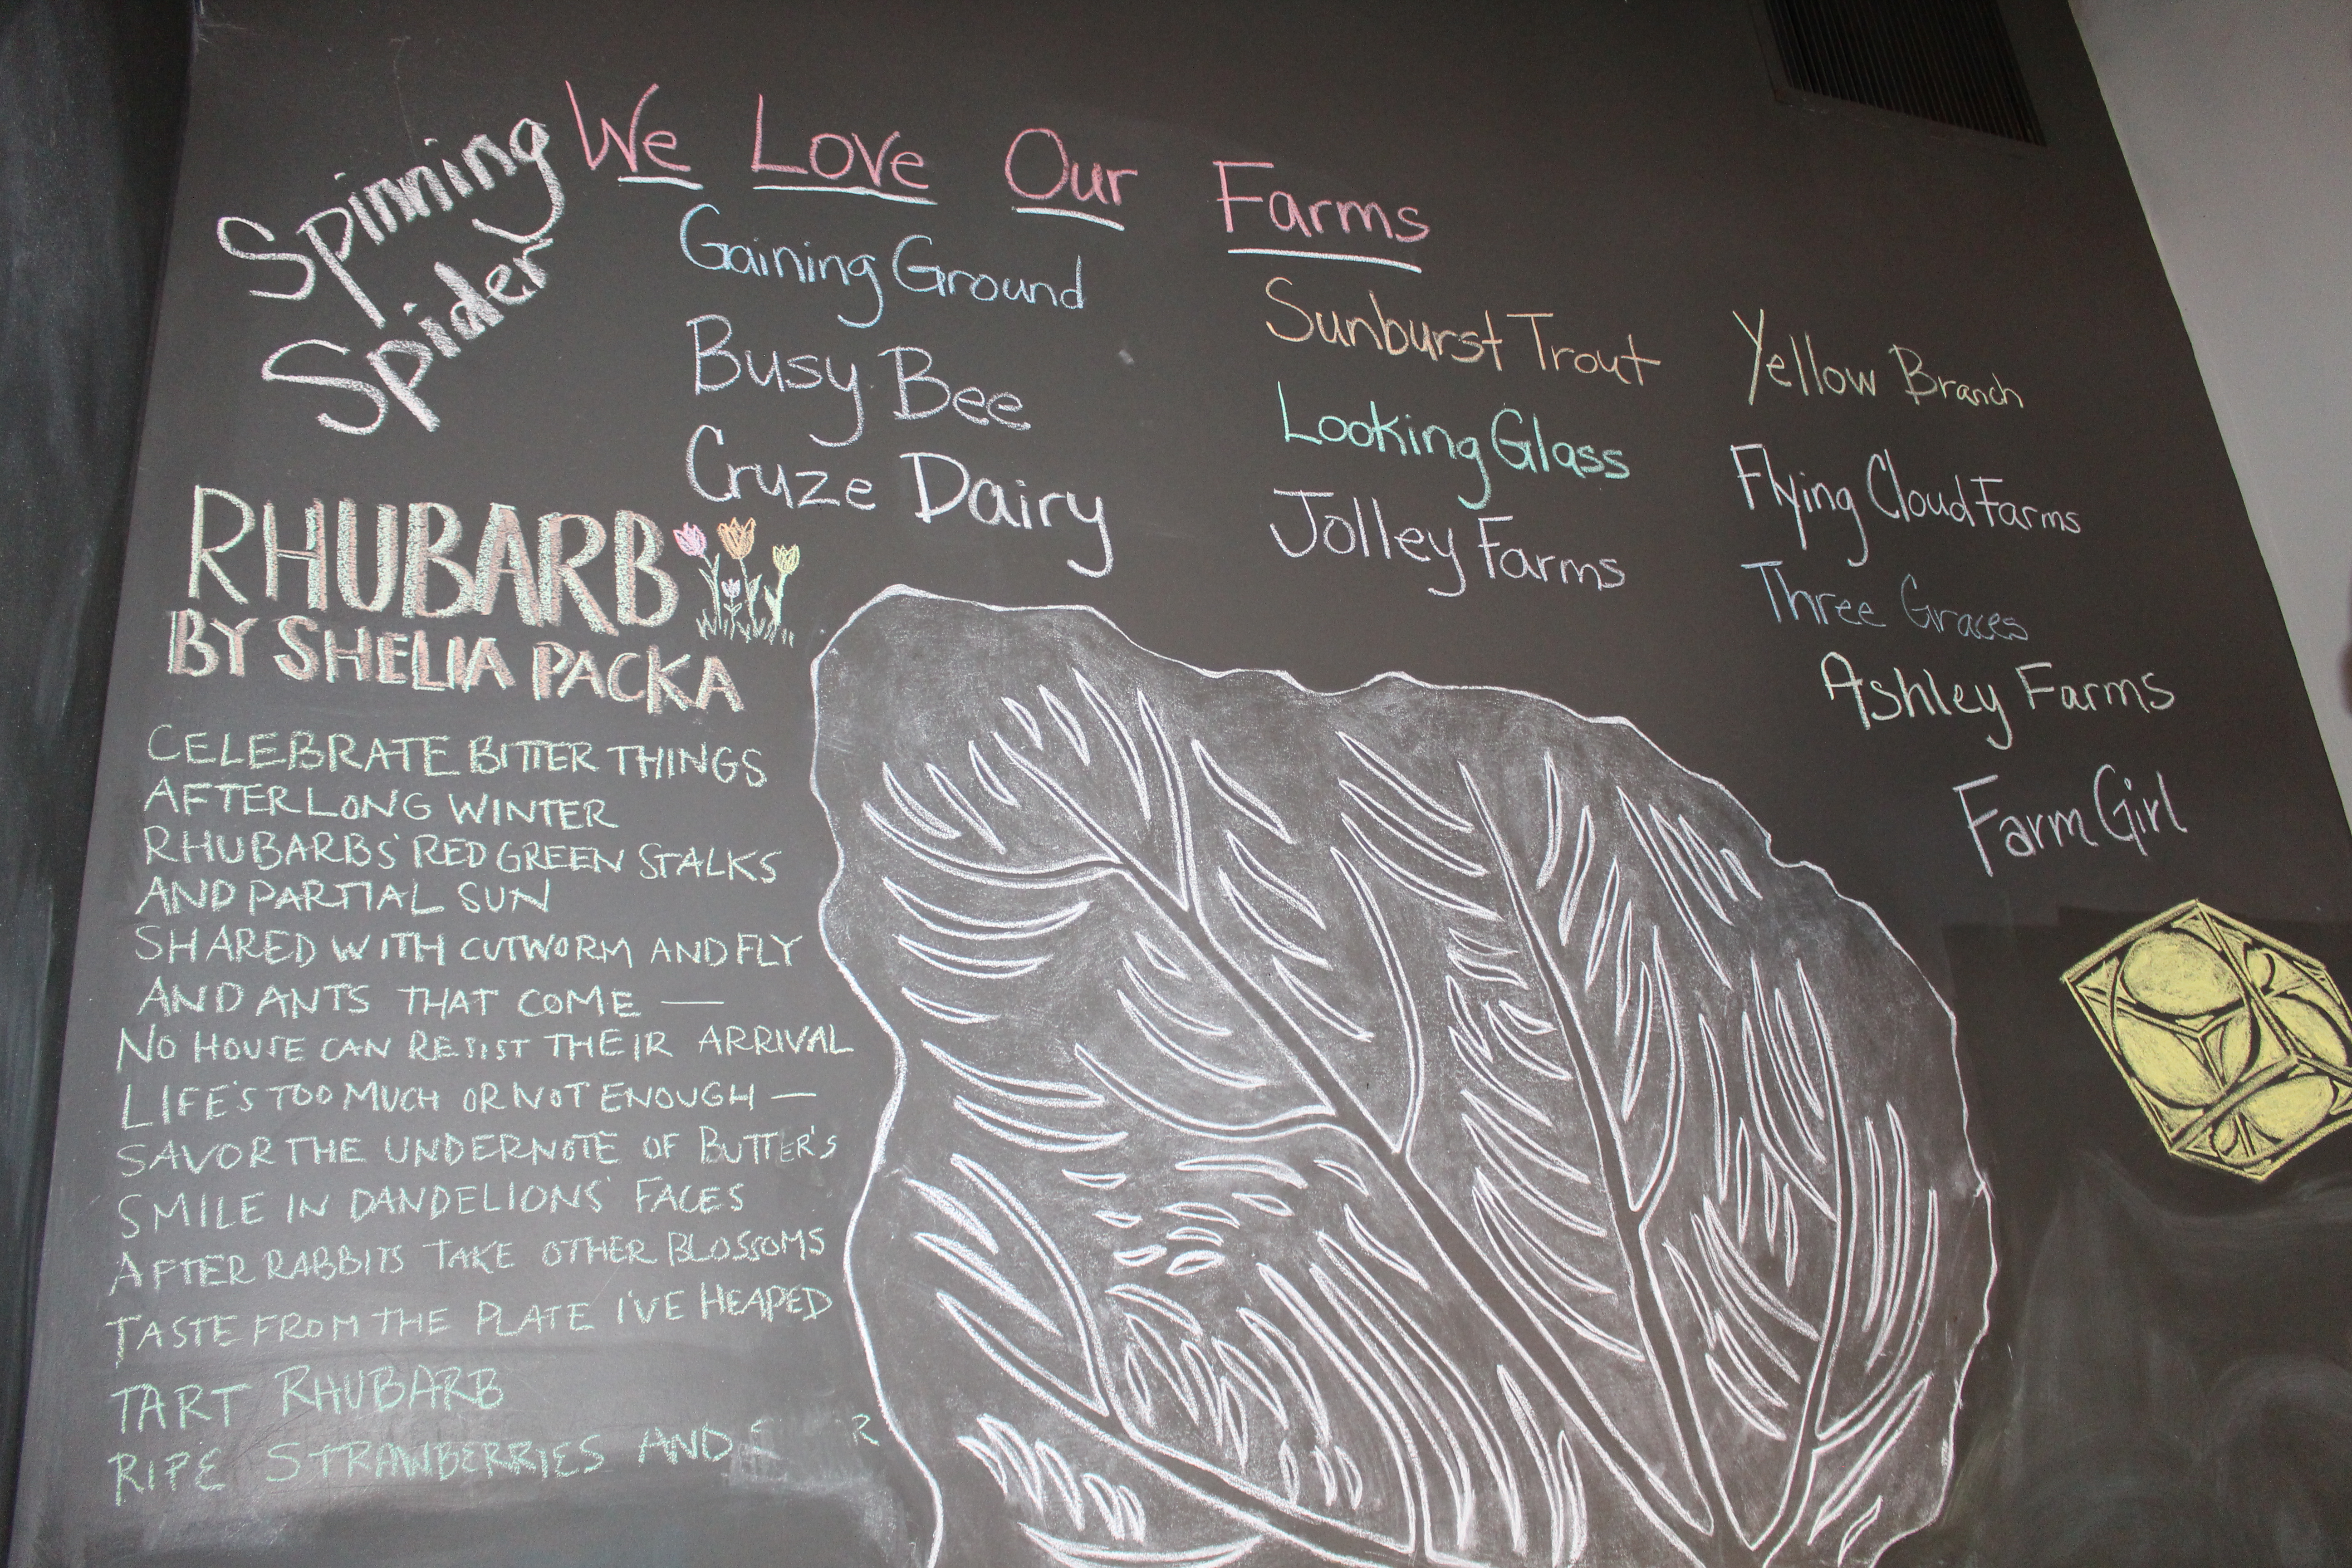 We Love Our Farms
Spinning
Spider
Gaining Ground
Busy Bee
Cruze Dairy
Sunburst Trout
Looking Glass
Jolley Farms
Yellow Branch
Flying Cloud Farms
Three Graces
Ashley Farms
Farm Girl
RHUBARB
BY SHELIA PACKA
CELEBRATE BITTER THINGS
AFTER LONG WINTER
RHUBARBS' RED GREEN STALKS
AND PARTIAL SUN
SHARED WITH CUTWORM AND FLY
AND ANTS THAT COME —
NO HOUSE CAN RESIST THEIR ARRIVAL
LIFE'S TOO MUCH OR NOT ENOUGH —
SAVOR THE UNDERNOTE OF BUTTER'S
SMILE IN DANDELIONS' FACES
AFTER RABBITS TAKE OTHER BLOSSOMS
TASTE FROM THE PLATE I'VE HEAPED
TART RHUBARB
RIPE STRAWBERRIES AND